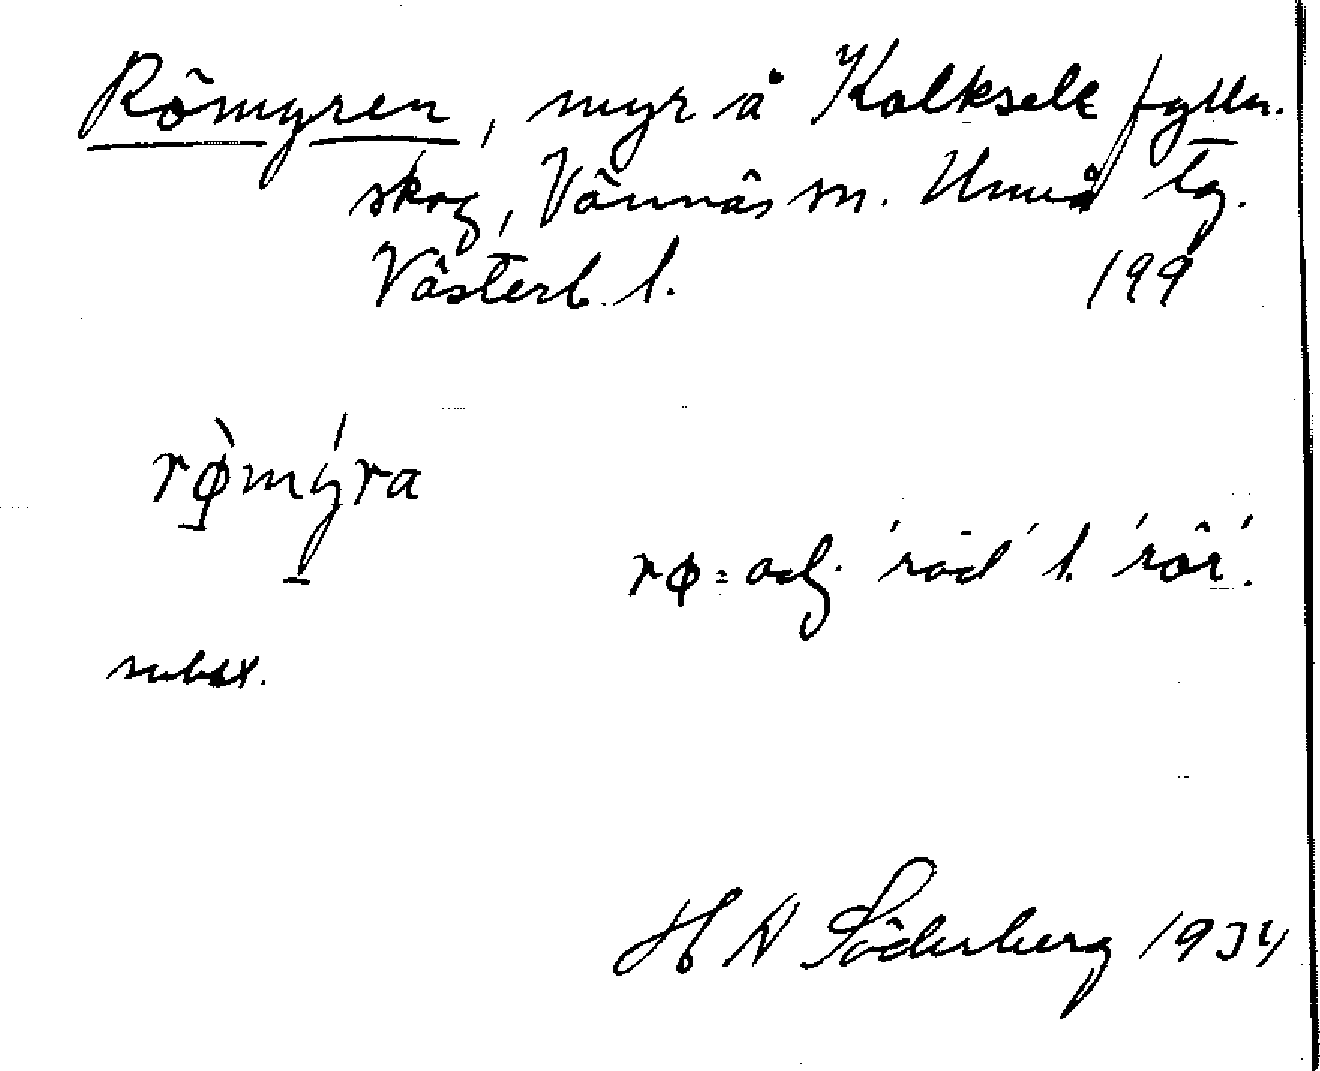 Römyren, myr å Kolksele fylln.
skog, Vännäs sn. Umeå tg.
Västerb. l. 199
rø̀mýra
rø = adj. 'röd' l. 'rör'.
subst.
H N Söderberg 1934